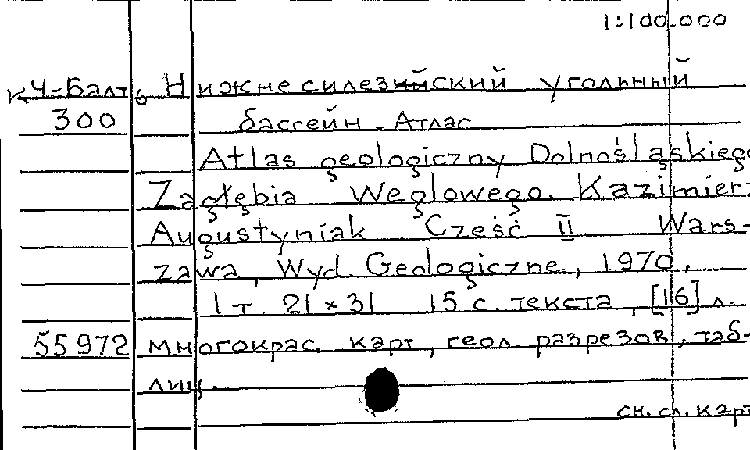 1:100.000
кЧ-Балт, Нижнесилезский угольный
300 бассейн. Атлас
Atlas geologiczny Dolnośląskiego
Zagłębia Węglowego. Kazimierz
Augustyniak Cześć II Wars-
zawa, Wyd. Geologiczne, 1970,
1 т. 21×31 15 с. текста, [16] л.
55972 многокрас. карт, геол. разрезов, таб-
лиц.
см. сл. карт